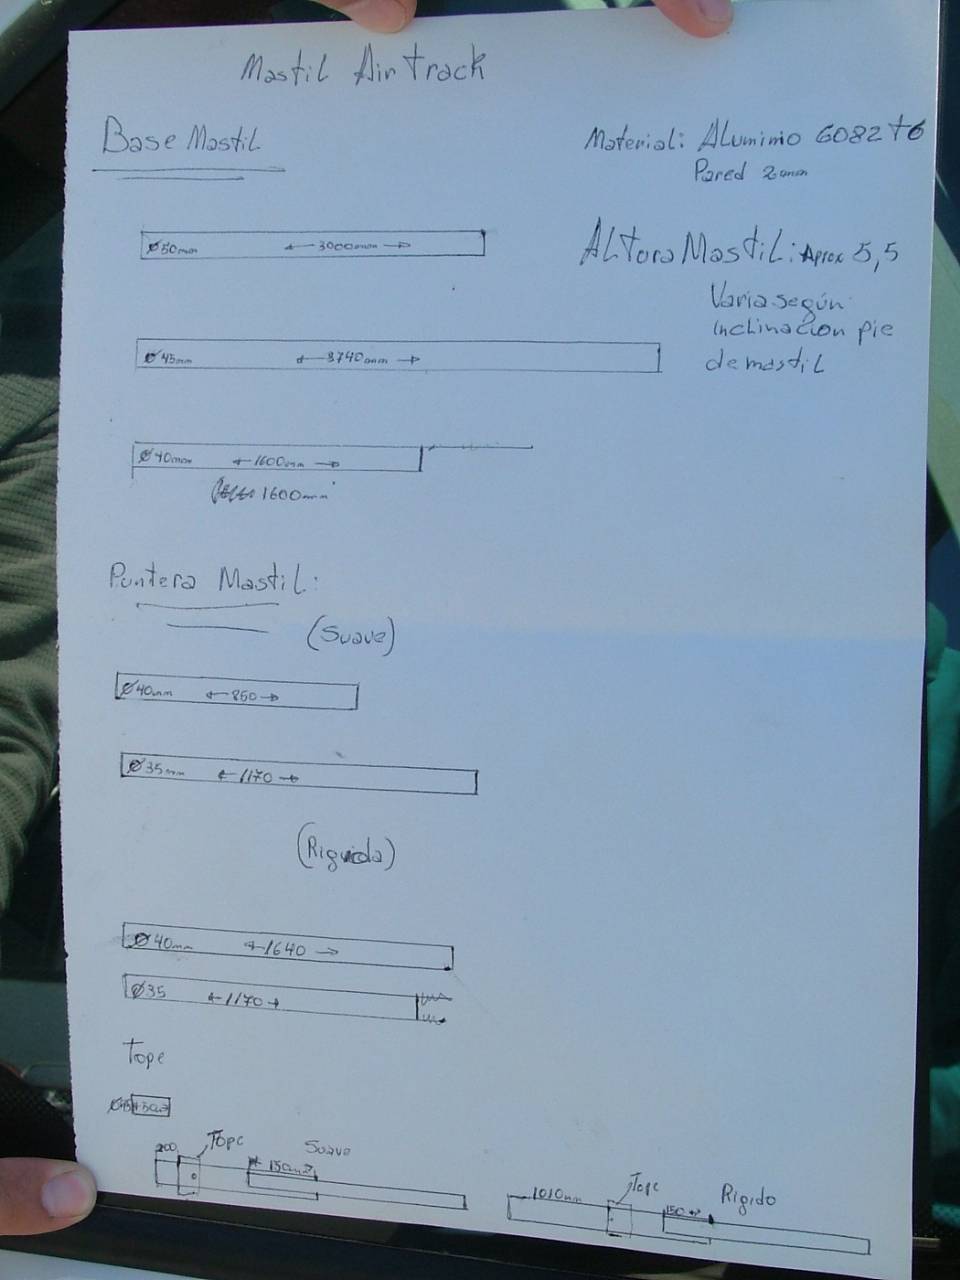 Mastil Airtrack
Base Mastil
Material: Aluminio 6082 t6
Pared 2mm
Ø50mm 3000mm
Altura Mastil: Aprox 5,5
Varia según
inclinacion pie
de mastil
Ø45mm 3740mm
Ø40mm 1600mm
1600mm
Puntera Mastil:
(Suave)
Ø40mm 850
Ø35mm 1170
(Riguida)
Ø40mm 1640
Ø35 1170
Tope
200 Tope Suave
150mm
1010mm Tope Rigido
150